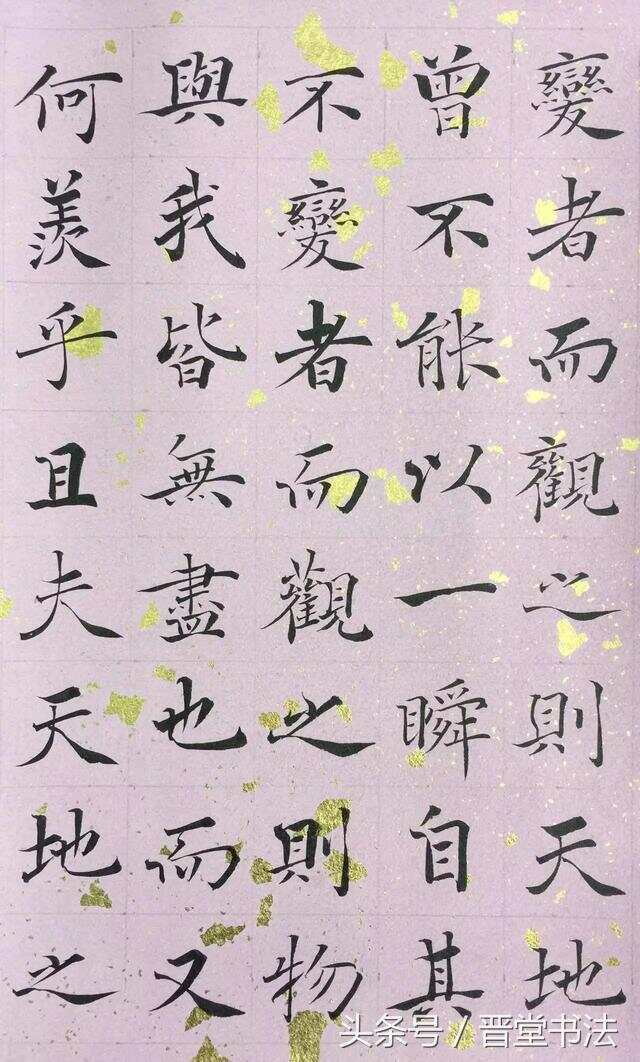 變者而觀之則天地
曾不能以一瞬自其
不變者而觀之則物
與我皆無盡也而又
何羨乎且夫天地之
头条号/晋堂书法